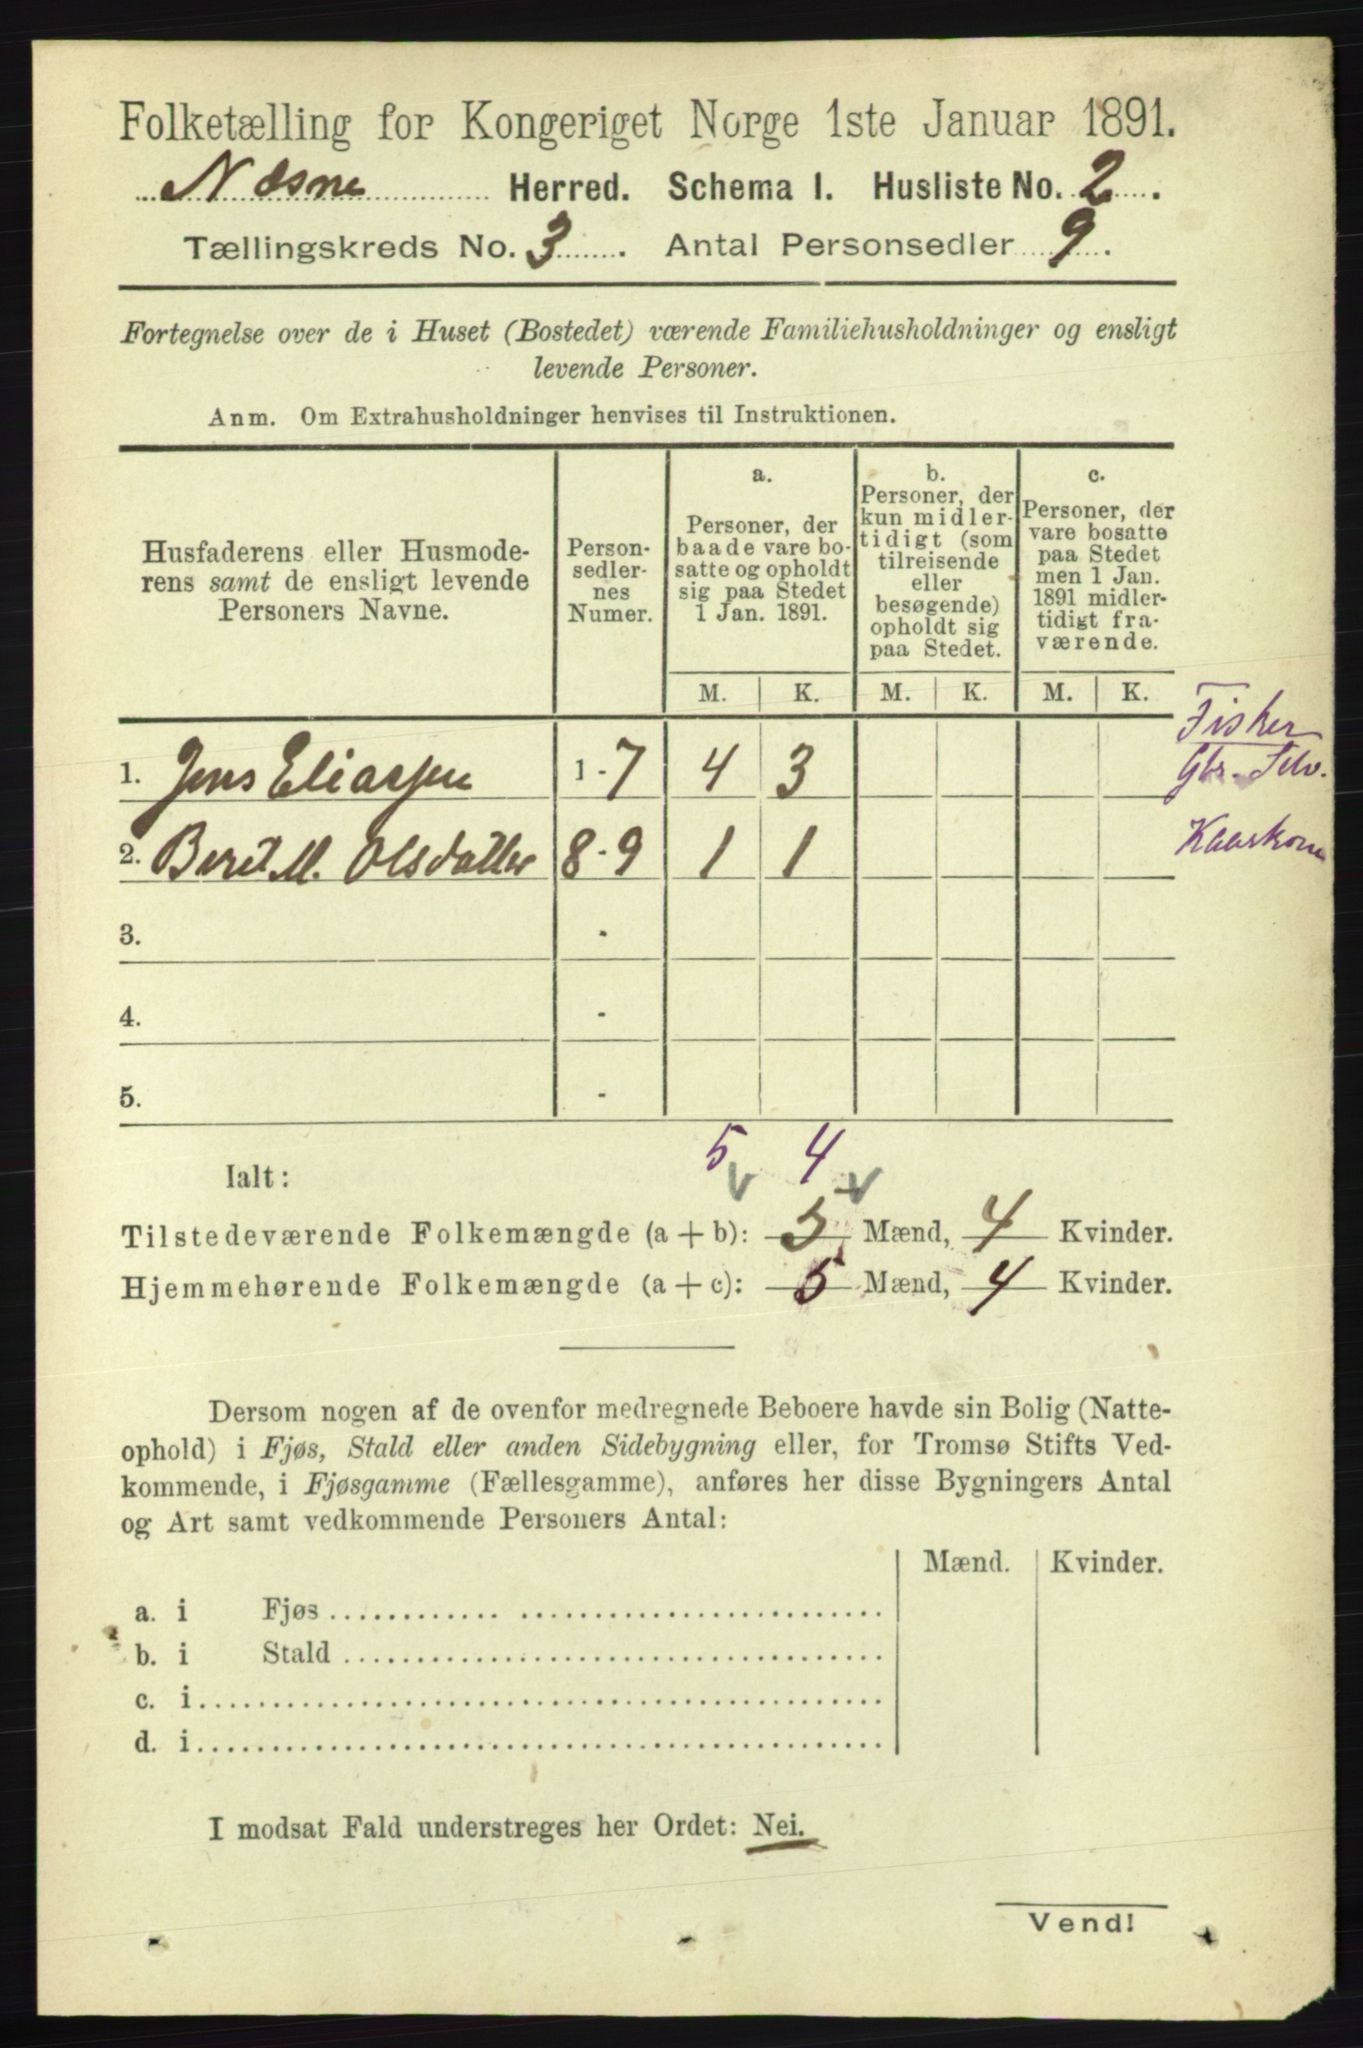 Folketælling for Kongeriget Norge 1ste Januar 1891.
Næsne Herred. Schema I. Husliste No. 2.
Tællingskreds No. 3. Antal Personsedler 9.
Fortegnelse over de i Huset (Bostedet) værende Familiehusholdninger og ensligt
levende Personer.
Anm. Om Extrahusholdninger henvises til Instruktionen.
Husfaderens eller Husmode-
rens samt de ensligt levende
Personers Navne.
Person-
sedler-
nes
Numer.
a.
Personer, der
baade vare bo-
satte og opholdt
sig paa Stedet
1 Jan. 1891.
b.
Personer, der
kun midler-
tidigt (som
tilreisende
eller
besøgende)
opholdt sig
paa Stedet.
c.
Personer, der
vare bosatte
paa Stedet
men 1 Jan.
1891 midler-
tidigt fra-
værende.
M. K. M. K. M. K.
Fisker
1. Jens Eliassen 1-7 4 3 Gbr. Selv.
2. Berit M. Olsdatter 8-9 1 1 Kaarkone
3. -
4. -
5. -
5 4
Ialt:
Tilstedeværende Folkemængde (a + b): 5 Mænd, 4 Kvinder.
Hjemmehørende Folkemængde (a + c): 5 Mænd, 4 Kvinder.
Dersom nogen af de ovenfor medregnede Beboere havde sin Bolig (Natte-
ophold) i Fjøs, Stald eller anden Sidebygning eller, for Tromsø Stifts Ved-
kommende, i Fjøsgamme (Fællesgamme), anføres her disse Bygningers Antal
og Art samt vedkommende Personers Antal:
Mænd. Kvinder.
a. i Fjøs
b. i Stald
c. i
d. i
I modsat Fald understreges her Ordet: Nei.
Vend!